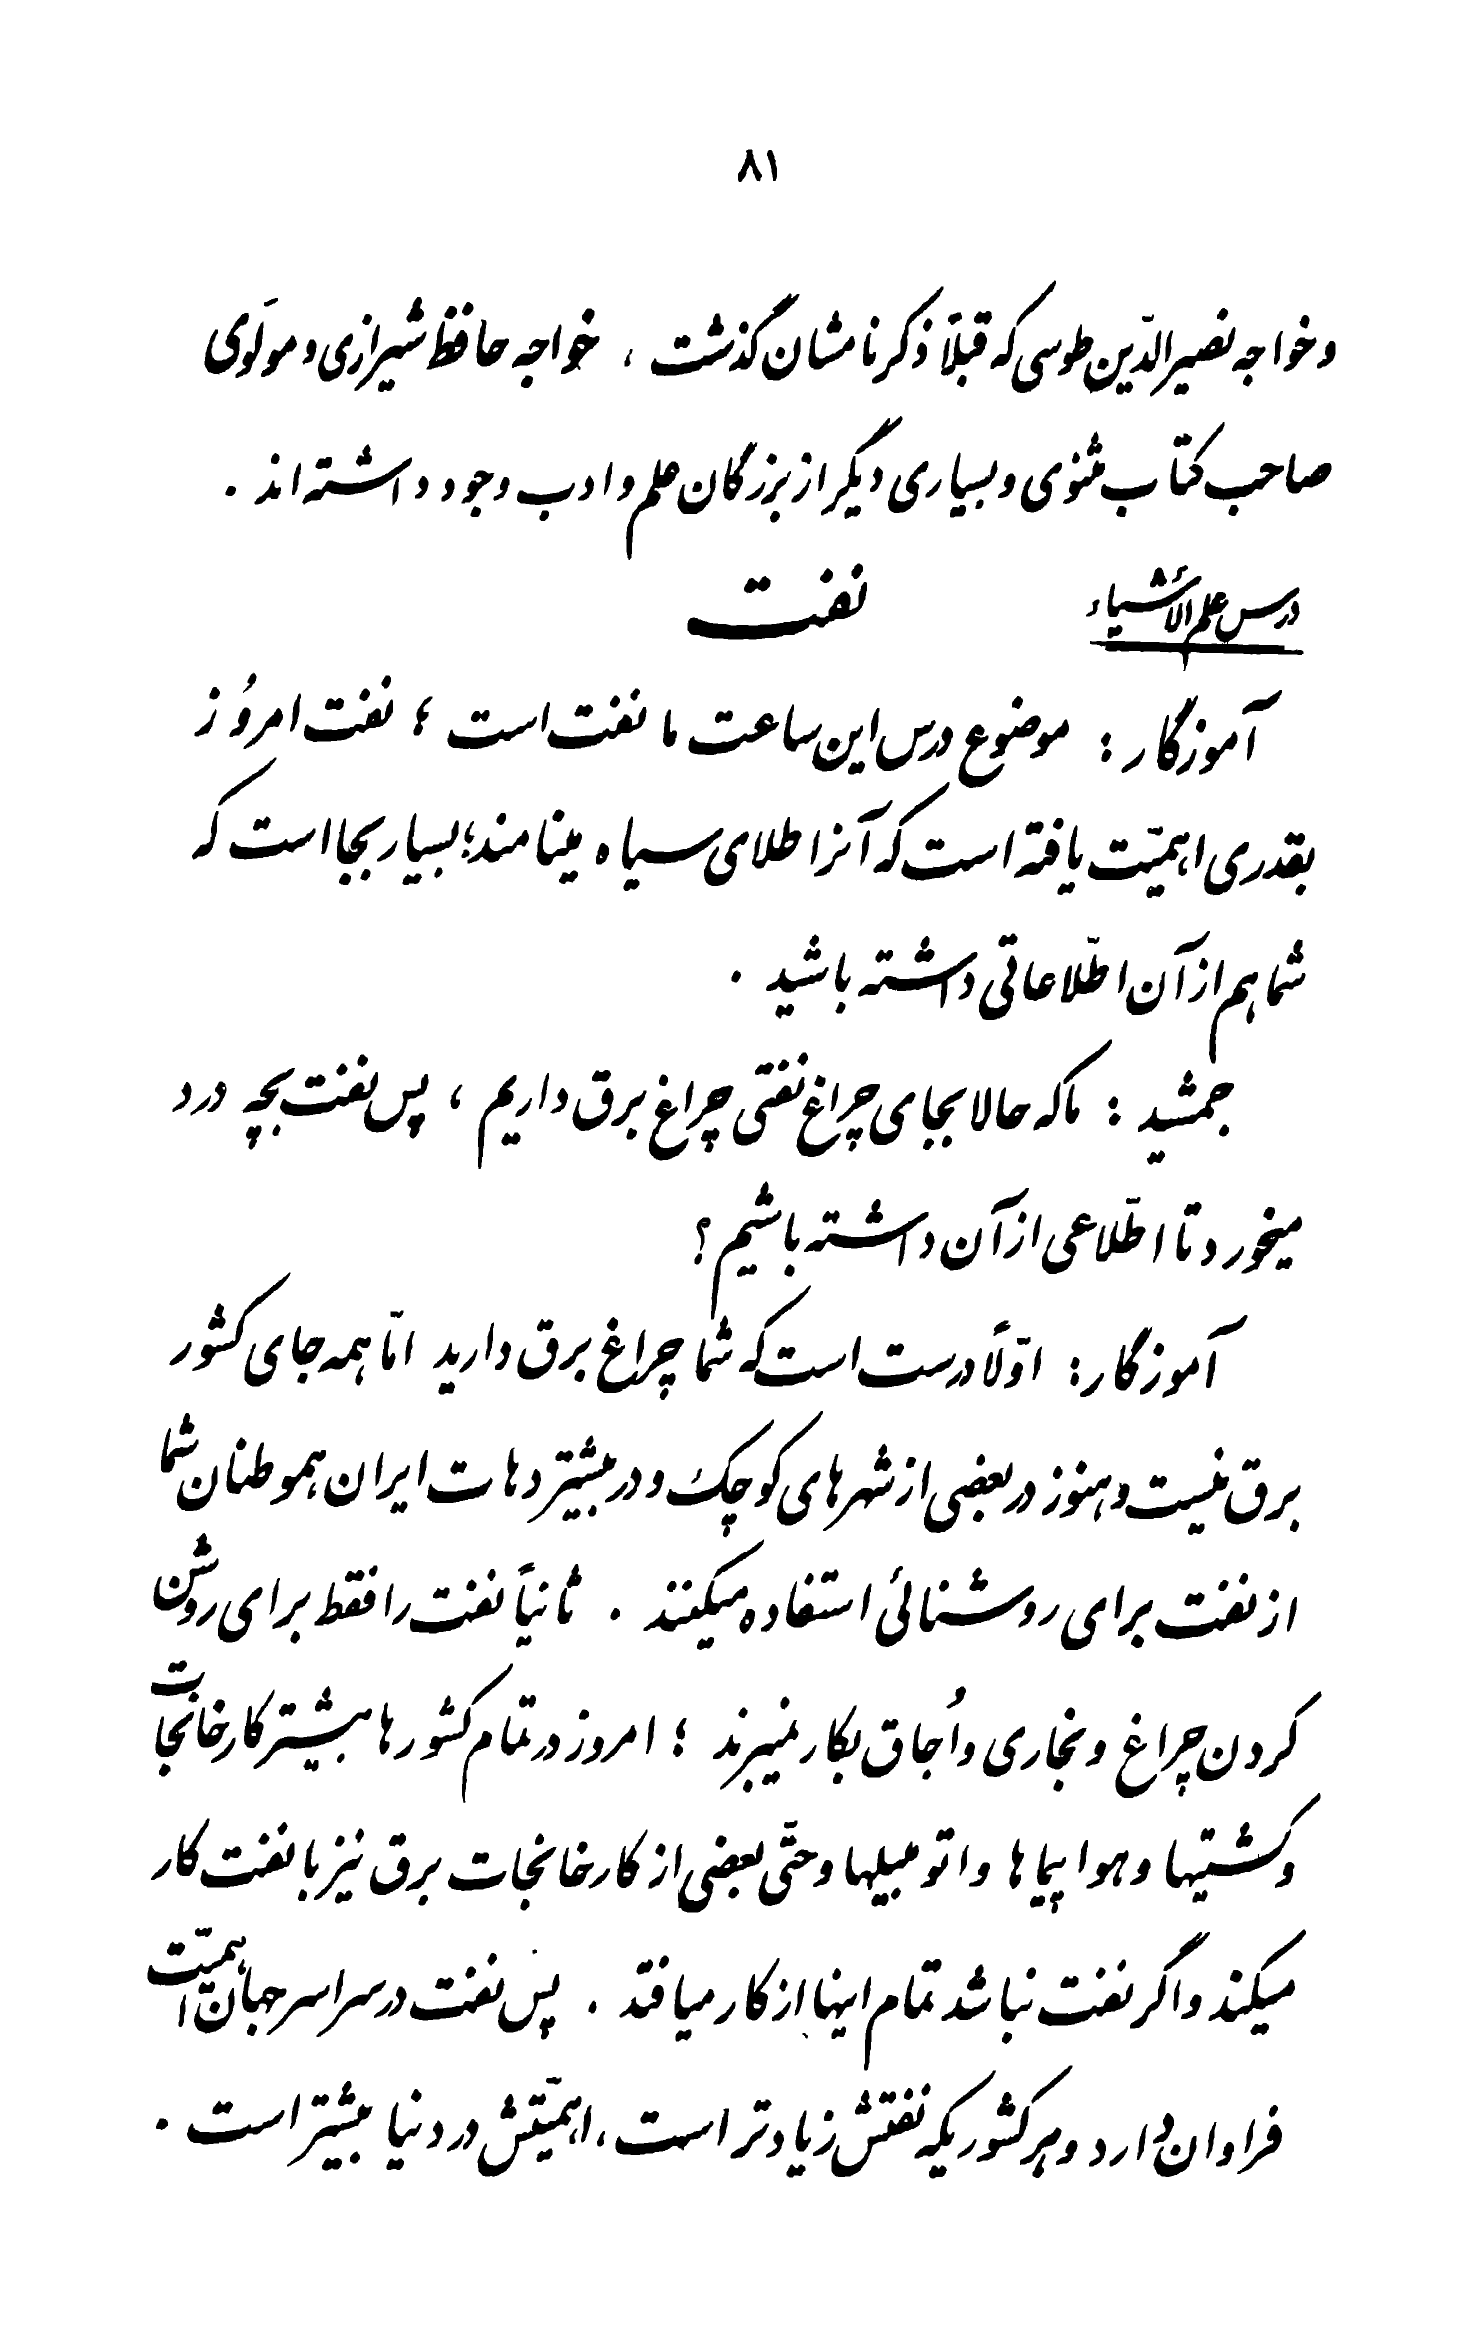 ۸۱
وخواجه نصیرالدّین طوسی که قبلاً ذکر نامشان گذشت ، خواجه حافظ شیرازی و مولَوی
صاحب کتاب مثنوی و بسیاری دیگر از بزرگان علم و ادب وجود داشته‌اند .
درس علم الأشیاء
نفت
آموزگار : موضوع درس این ساعت ما نفت است ؛ نفت امرُوز
بقدری اهمیّت یافته است که آنرا طلای سیاه مینامند؛ بسیار بجا است که
شما هم از آن اطّلاعاتی داشته باشید .
جمشید : ما که حالا بجای چراغ نفتی چراغ برق داریم ، پس نفت بچه درد
میخورد تا اطّلاعی از آن داشته باشیم ؟
آموزگار : اوّلاً درست است که شما چراغ برق دارید امّا همه جای کشور
برق نیست و هنوز در بعضی از شهرهای کوچک و در بیشتر دهات ایران هموطنان شما
از نفت برای روشنائی استفاده میکنند . ثانیاً نفت را فقط برای روشن
کردن چراغ و بخاری و اُجاق بکار نمیبرند ؛ امروز در تمام کشورها بیشتر کارخانجات
و کشتیها و هوا پیماها و اتومبیلها و حتّی بعضی از کارخانجات برق نیز با نفت کار
میکند و اگر نفت نباشد تمام اینها از کار میافتد . پس نفت در سراسر جهان اهمیّت
فراوان دارد و هر کشوریکه نفتش زیادتر است ، اهمیّتش در دنیا بیشتر است .